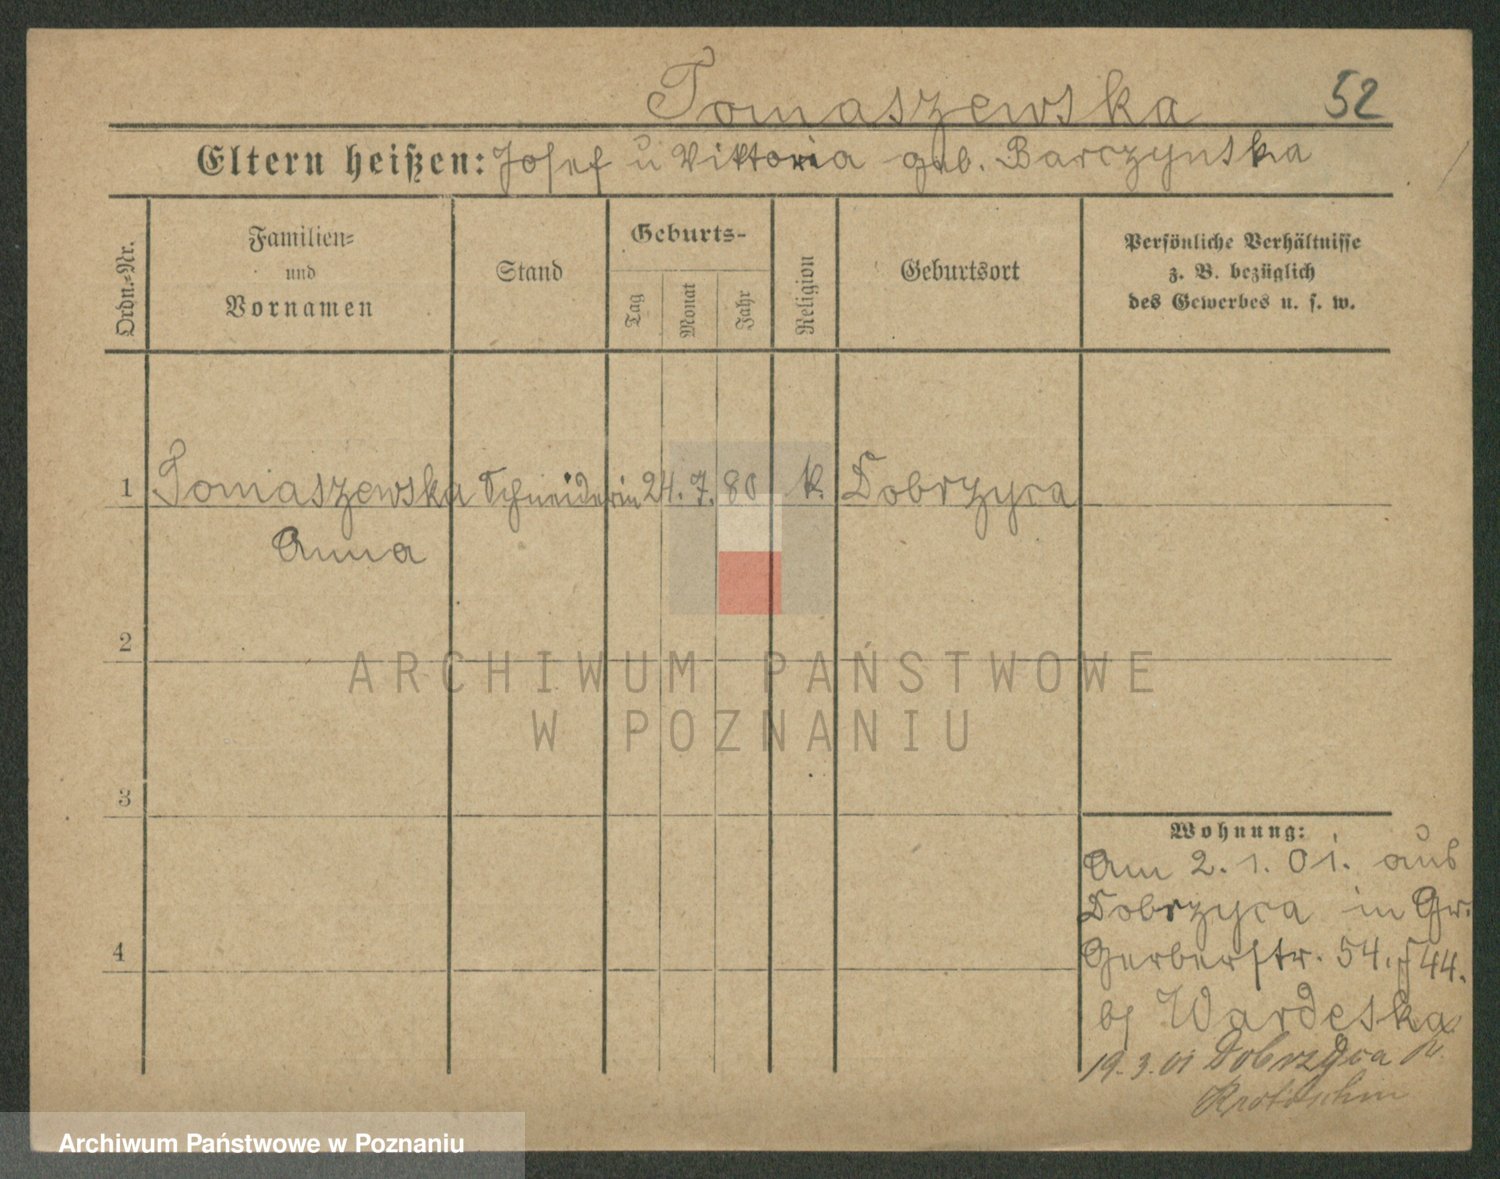 Tomaszewska 52
Eltern heißen: Josef u Viktoria geb. Barczynska
Ordn.-Nr.
Familien-
und
Vornamen
Stand
Geburts-
Tag
Monat
Jahr
Religion
Geburtsort
Persönliche Verhältnisse
z. B. bezüglich
des Gewerbes u. s. w.
1 Tomaszewska Schneiderin 24. 7. 80 k. Dobrzyca
Anna
2
ARCHIWUM PAŃSTWOWE
W POZNANIU
3
4
Wohnung:
Am 2. 1. 01. aus
Dobrzyca in Gr.
Gerberstr. 54. 44.
bj Wardeska
19. 3. 01 Dobrzyca
Krotoschin
Archiwum Państwowe w Poznaniu